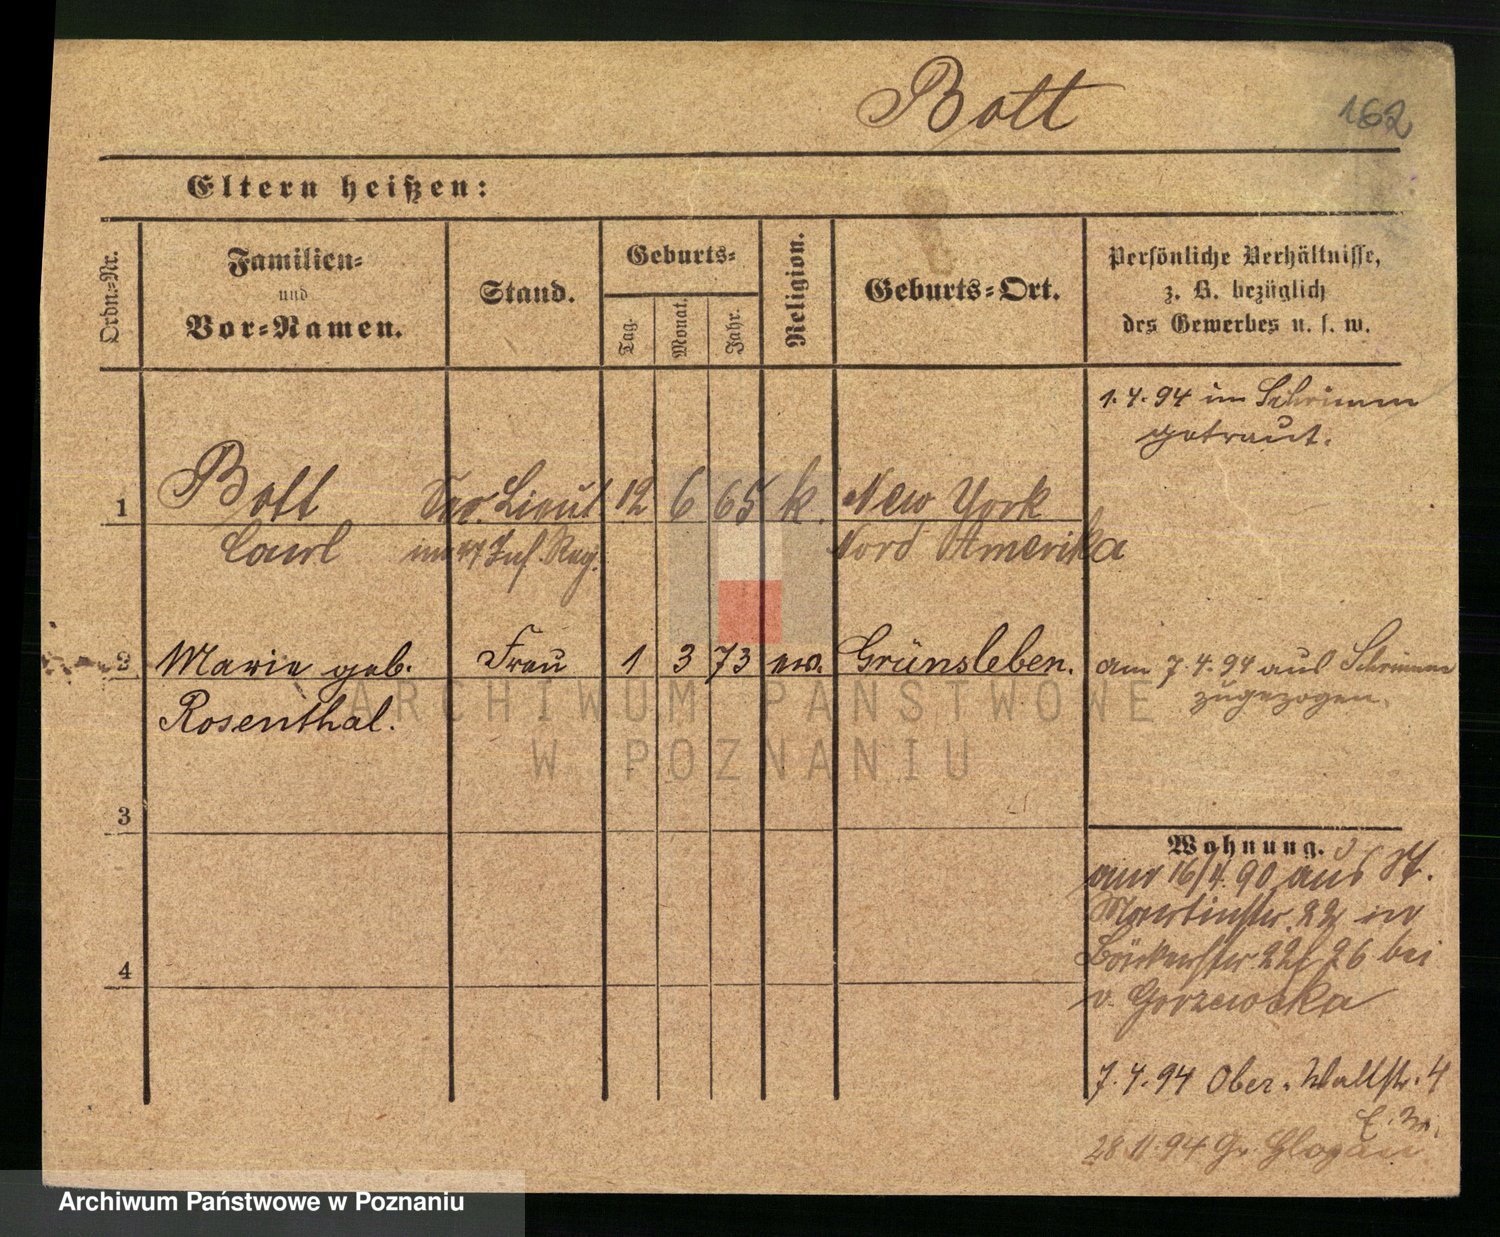 Bott
162
Eltern heißen:
Ordn.-Nr.
Familien-
und
Vor-Namen.
Stand.
Geburts-
Tag.
Monat.
Jahr.
Religion.
Geburts-Ort.
Persönliche Verhältnisse,
z. B. bezüglich
des Gewerbes u. s. w.
1.4.94 in Schrimm
getraut.
1 Bott Sec. Lieut 12 6 65 k. New York
Carl im 47 Inf. Reg. Nord Amerika
2 Marie geb. Frau 1 3 73 ev. Grünsleben. am 7.4.94 aus Schrimm
Rosenthal. zugezogen.
3
4
Wohnung.
16/4.90 aus St.
Martinstr. 22 in
Bäckerstr 26 bei
v. Gorzewska
7.4.94 Ober. Wallstr. 4
28.11.94 Glogau
ARCHIWUM PAŃSTWOWE
W POZNANIU
Archiwum Państwowe w Poznaniu